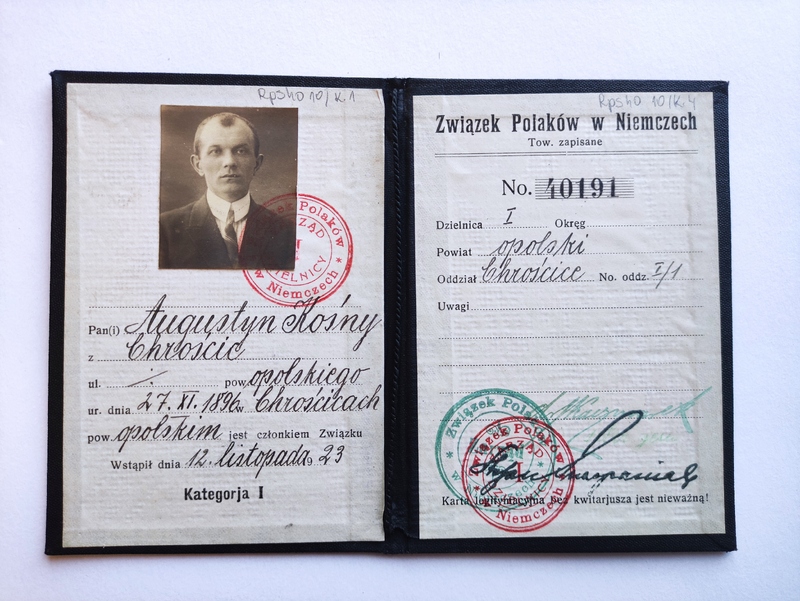 Rps 40 10/k.1
Związek Polaków w Niemczech
ZARZĄD DZIELNICY I
Pan(i) Augustyn Kośny
z Chrościc
ul. /. pow. opolskiego
ur. dnia 27. XI. 1896 w Chrościcach
pow. opolskim jest członkiem Związku
Wstąpił dnia 12. listopada 1923
Kategorja I
Rps 40 10/k.4
Związek Polaków w Niemczech
Tow. zapisane
No. 40191
Dzielnica I Okręg
Powiat opolski
Oddział Chrościce No. oddz. I/1
Uwagi
Związek Polaków
Związek Polaków w Niemczech
ZARZĄD
I
Karta legitymacyjna bez kwitarjusza jest nieważną!